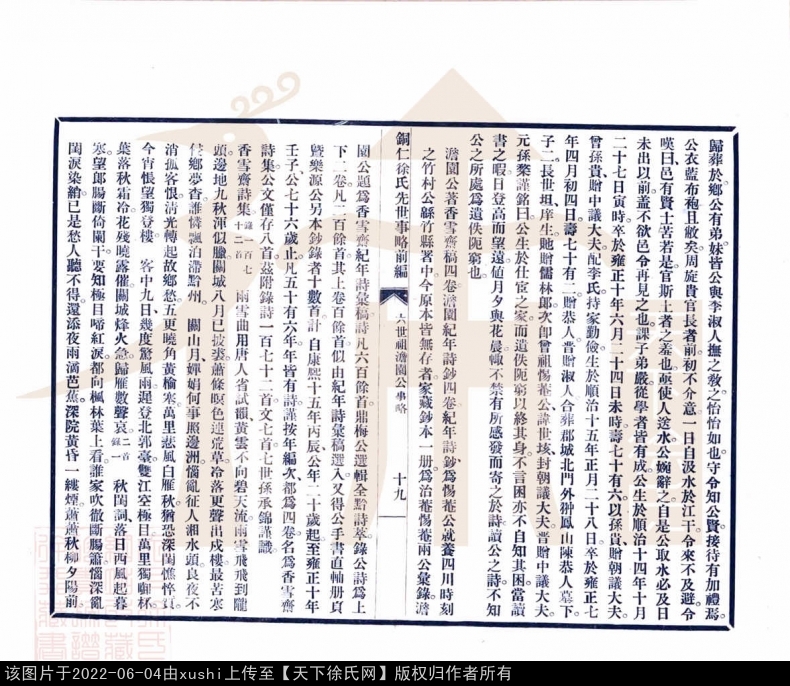 歸葬於鄉公有弟妹皆公與李淑人撫之敎之怡怡如也守令知公賢接待有加禮焉
公衣藍布袍且敝矣周旋貴官長者前初不介意一日自汲水於江干令來不及避令
嘆曰邑有賢士苦若是官斯土者之羞也亟使人送水公婉辭之自是公取水必及日
未出以前蓋不欲邑令再見之也課子弟嚴從學者皆有成公生於順治十四年十月
二十七日寅時卒於雍正十年六月二十四日未時壽七十有六以孫貴贈朝議大夫
曾孫貴贈中議大夫配李氏持家勤儉生於順治十五年正月二十八日卒於雍正七
年四月初四日壽七十有二贈恭人晋贈淑人合葬郡城北門外翀鳳山陳恭人墓下
子二長世垣庠生貤贈儒林郎次卽曾祖惕菴公諱世垓封朝議大夫晋贈中議大夫
元孫楘謹銘曰公生於仕宦之家而遺佚阨窮以終其身不言困亦不自知其困當讀
書之暇日登高而望遠値月夕與花晨輒不禁有所感發而寄之於詩讀公之詩不知
公之所處爲遺佚阨窮也
澹園公著香雪齋稿四卷澹園紀年詩鈔四卷紀年詩鈔爲惕菴公就養四川時刻
之竹村公緜竹縣署中今原本皆無存者家藏鈔本一册爲治菴惕菴兩公彙錄澹
銅仁徐氏先世事略前編 六世祖澹園公事略 十九
園公題爲香雪齋紀年詩彙稿詩凡六百餘首鼎梅公選輯全黔詩萃錄公詩爲上
下二卷凡二百餘首其上卷百餘首似由紀年詩彙稿選入又得公手書直軸册頁
曁樂源公另本鈔錄者十數首計自康熙十五年丙辰公年二十歲起至雍正十年
壬子公七十六歲止凡五十有六年年皆有詩謹按年編次都爲四卷名爲香雪齋
詩集公文僅存八首茲附錄詩一百七十二首文七首七世孫承錦謹識
香雪齋詩集錄一百七十二首 雨雪曲用唐人省試韻黃雲不向碧天流雨雪飛飛到隴
頭邊地九秋渾似臘關城八月已披裘蕭條暝色連荒草冷落更聲出戍樓最苦寒
侵鄉夢杳誰憐飄泊滯黔州 關山月嬋娟何事照邊洲惱亂征人湘水頭良夜不
消孤客恨淸光轉起故鄉愁五更曉角黃楡寒萬里悲風白雁秋猶恐深閨憔悴質
今宵悵望獨登樓 客中九日幾度驚風雨遲登北郭臺雙江空極目萬里獨啣杯
葉落秋霜冷花殘曉露催關城烽火急歸雁數聲哀錄一二首 秋閨詞落日西風起暮
寒望郎腸斷倚闌干要知極目啼紅淚都向楓林葉上看誰家吹徹斷腸簫惱深亂
閨淚染綃已是愁人聽不得還添夜雨滴芭蕉深院黃昏一縷煙蕭蕭秋柳夕陽前
该图片于2022-06-04由xushi上传至【天下徐氏网】版权归作者所有